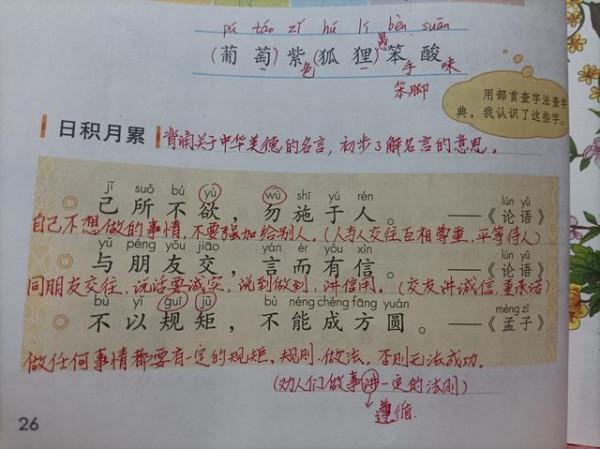 pú táo zǐ hú lí bèn suān
(葡萄)紫(狐狸)笨酸
色 愚 手 味
笨脚
用部首查字法查字
典，我认识了这些字。
日积月累 背诵关于中华美德的名言，初步了解名言的意思。
jǐ suǒ bú yù wù shī yú rén lún yǔ
己所不欲，勿施于人。 ——《论语》
自己不想做的事情，不要强加给别人。(人与人交往互相尊重，平等待人)
yǔ péng yǒu jiāo yán ér yǒu xìn lún yǔ
与朋友交，言而有信。 ——《论语》
同朋友交往，说话要诚实，说到做到，讲信用。(交友讲诚信，重承诺)
bù yǐ guī jǔ bù néng chéng fāng yuán mèng zǐ
不以规矩，不能成方圆。 ——《孟子》
做任何事情都要有一定的规矩，规则，做法，否则无法成功。
(劝人们做事讲一定的法则)
遵循
26